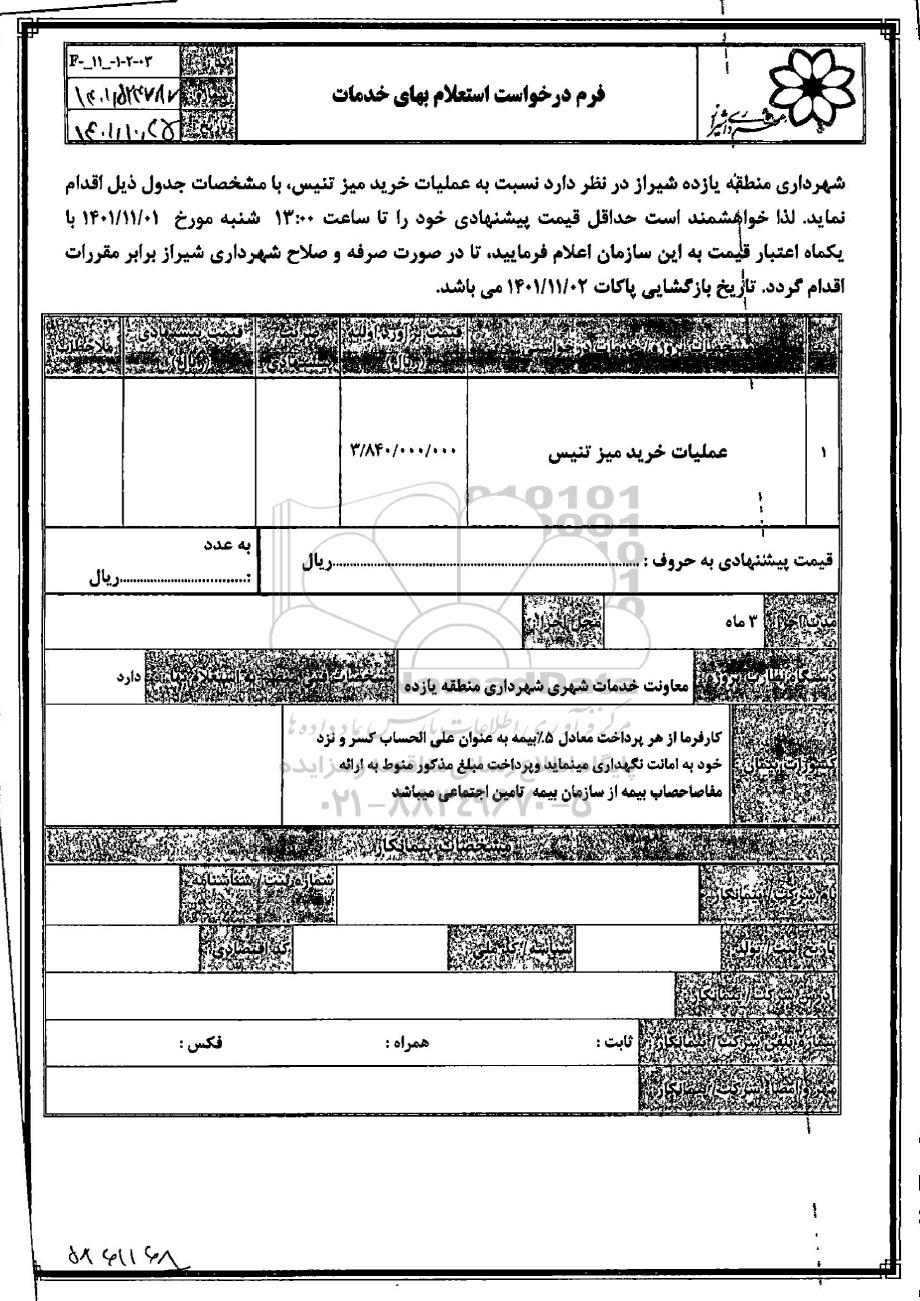 فرم درخواست استعلام بهای خدمات
شهرداری شیراز
کد:
F-_11_-1-۲-۰۳
شماره:
تاریخ:
شهرداری منطقه یازده شیراز در نظر دارد نسبت به عملیات خرید میز تنیس، با مشخصات جدول ذیل اقدام
نماید. لذا خواهشمند است حداقل قیمت پیشنهادی خود را تا ساعت ۱۳:۰۰ شنبه مورخ ۱۴۰۱/۱۱/۰۱ با
یکماه اعتبار قیمت به این سازمان اعلام فرمایید، تا در صورت صرفه و صلاح شهرداری شیراز برابر مقررات
اقدام گردد. تاریخ بازگشایی پاکات ۱۴۰۱/۱۱/۰۲ می باشد.
قیمت برآورد اولیه (ریال)
قیمت پیشنهادی (ریال)
ملاحظات
۱ عملیات خرید میز تنیس ۳/۸۴۰/۰۰۰/۰۰۰
قیمت پیشنهادی به حروف : ..................ریال
به عدد
:..................ریال
مدت اجرا: ۳ ماه محل اجرا:
دستگاه نظارت پروژه: معاونت خدمات شهری شهرداری منطقه یازده دارد
کارفرما از هر پرداخت معادل ۵٪بیمه به عنوان علی الحساب کسر و نزد
خود به امانت نگهداری مینماید وپرداخت مبلغ مذکور منوط به ارائه
مفاصاحصاب بیمه از سازمان بیمه تامین اجتماعی میباشد
مشخصات پیمانکار
نام شرکت/ پیمانکار شماره ثبت/ شناسنامه
تاریخ ثبت/ تولد شناسه/ کد ملی کد اقتصادی
آدرس شرکت/ پیمانکار
شماره تلفن شرکت/ پیمانکار ثابت : همراه : فکس :
مهر و امضاء شرکت/ پیمانکار
۰۲۱-۸۸۳۴۹۶۷۰-۵